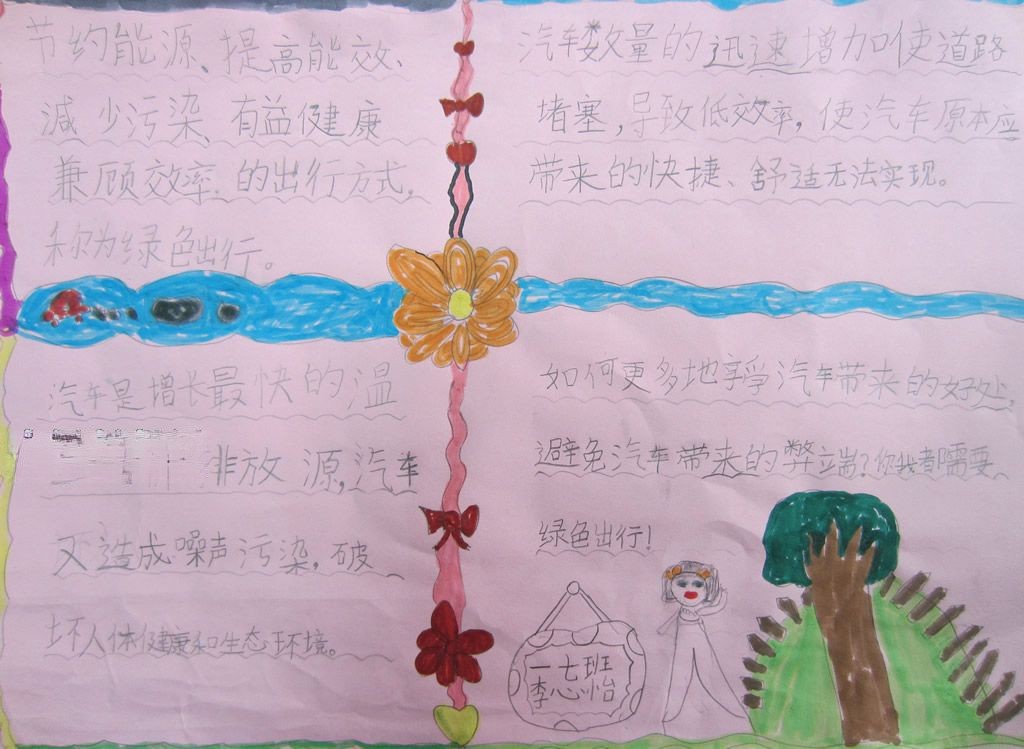 节约能源、提高能效、
减少污染、有益健康
兼顾效率的出行方式,
称为绿色出行。
汽车数量的迅速增加使道路
堵塞,导致低效率,使汽车原本应
带来的快捷、舒适无法实现。
汽车是增长最快的温
排放源,汽车
又造成噪声污染,破
坏人体健康和生态环境。
如何更多地享受汽车带来的好处,
避免汽车带来的弊端?你我都需要
绿色出行!
一七班
李心怡